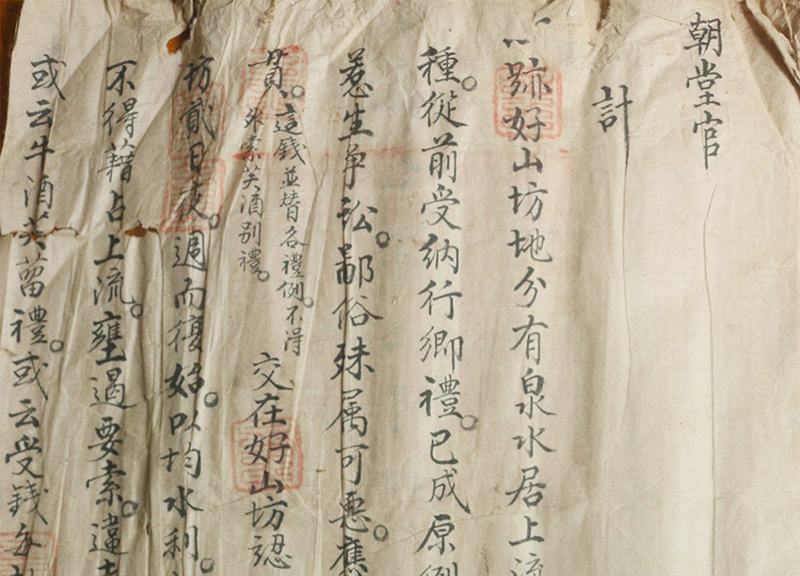 朝堂官
計
跡好山坊地分有泉水居上流
種。從前受納行鄉禮。已成原例
惹生争訟。鄙俗殊属可惡。應
貫。這錢並皆各禮例。不得
外索芙酒别禮。
交在好山坊認
坊貳日夜。週而復始。以均水利。
不得藉占上流。壅遏要索。違
或云牛酒芙蒥禮。或云受錢